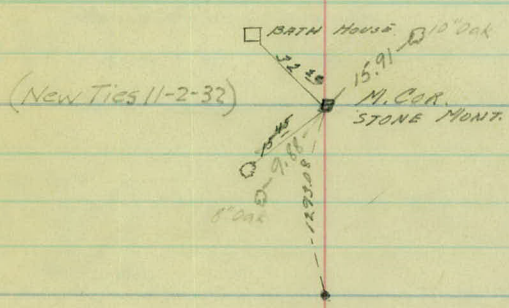 BATH HOUSE
10" Oak
32 40
15.91
(NEW TIES 11-2-32)
M. COR.
STONE MONT.
15 45
9.88
8" Oak